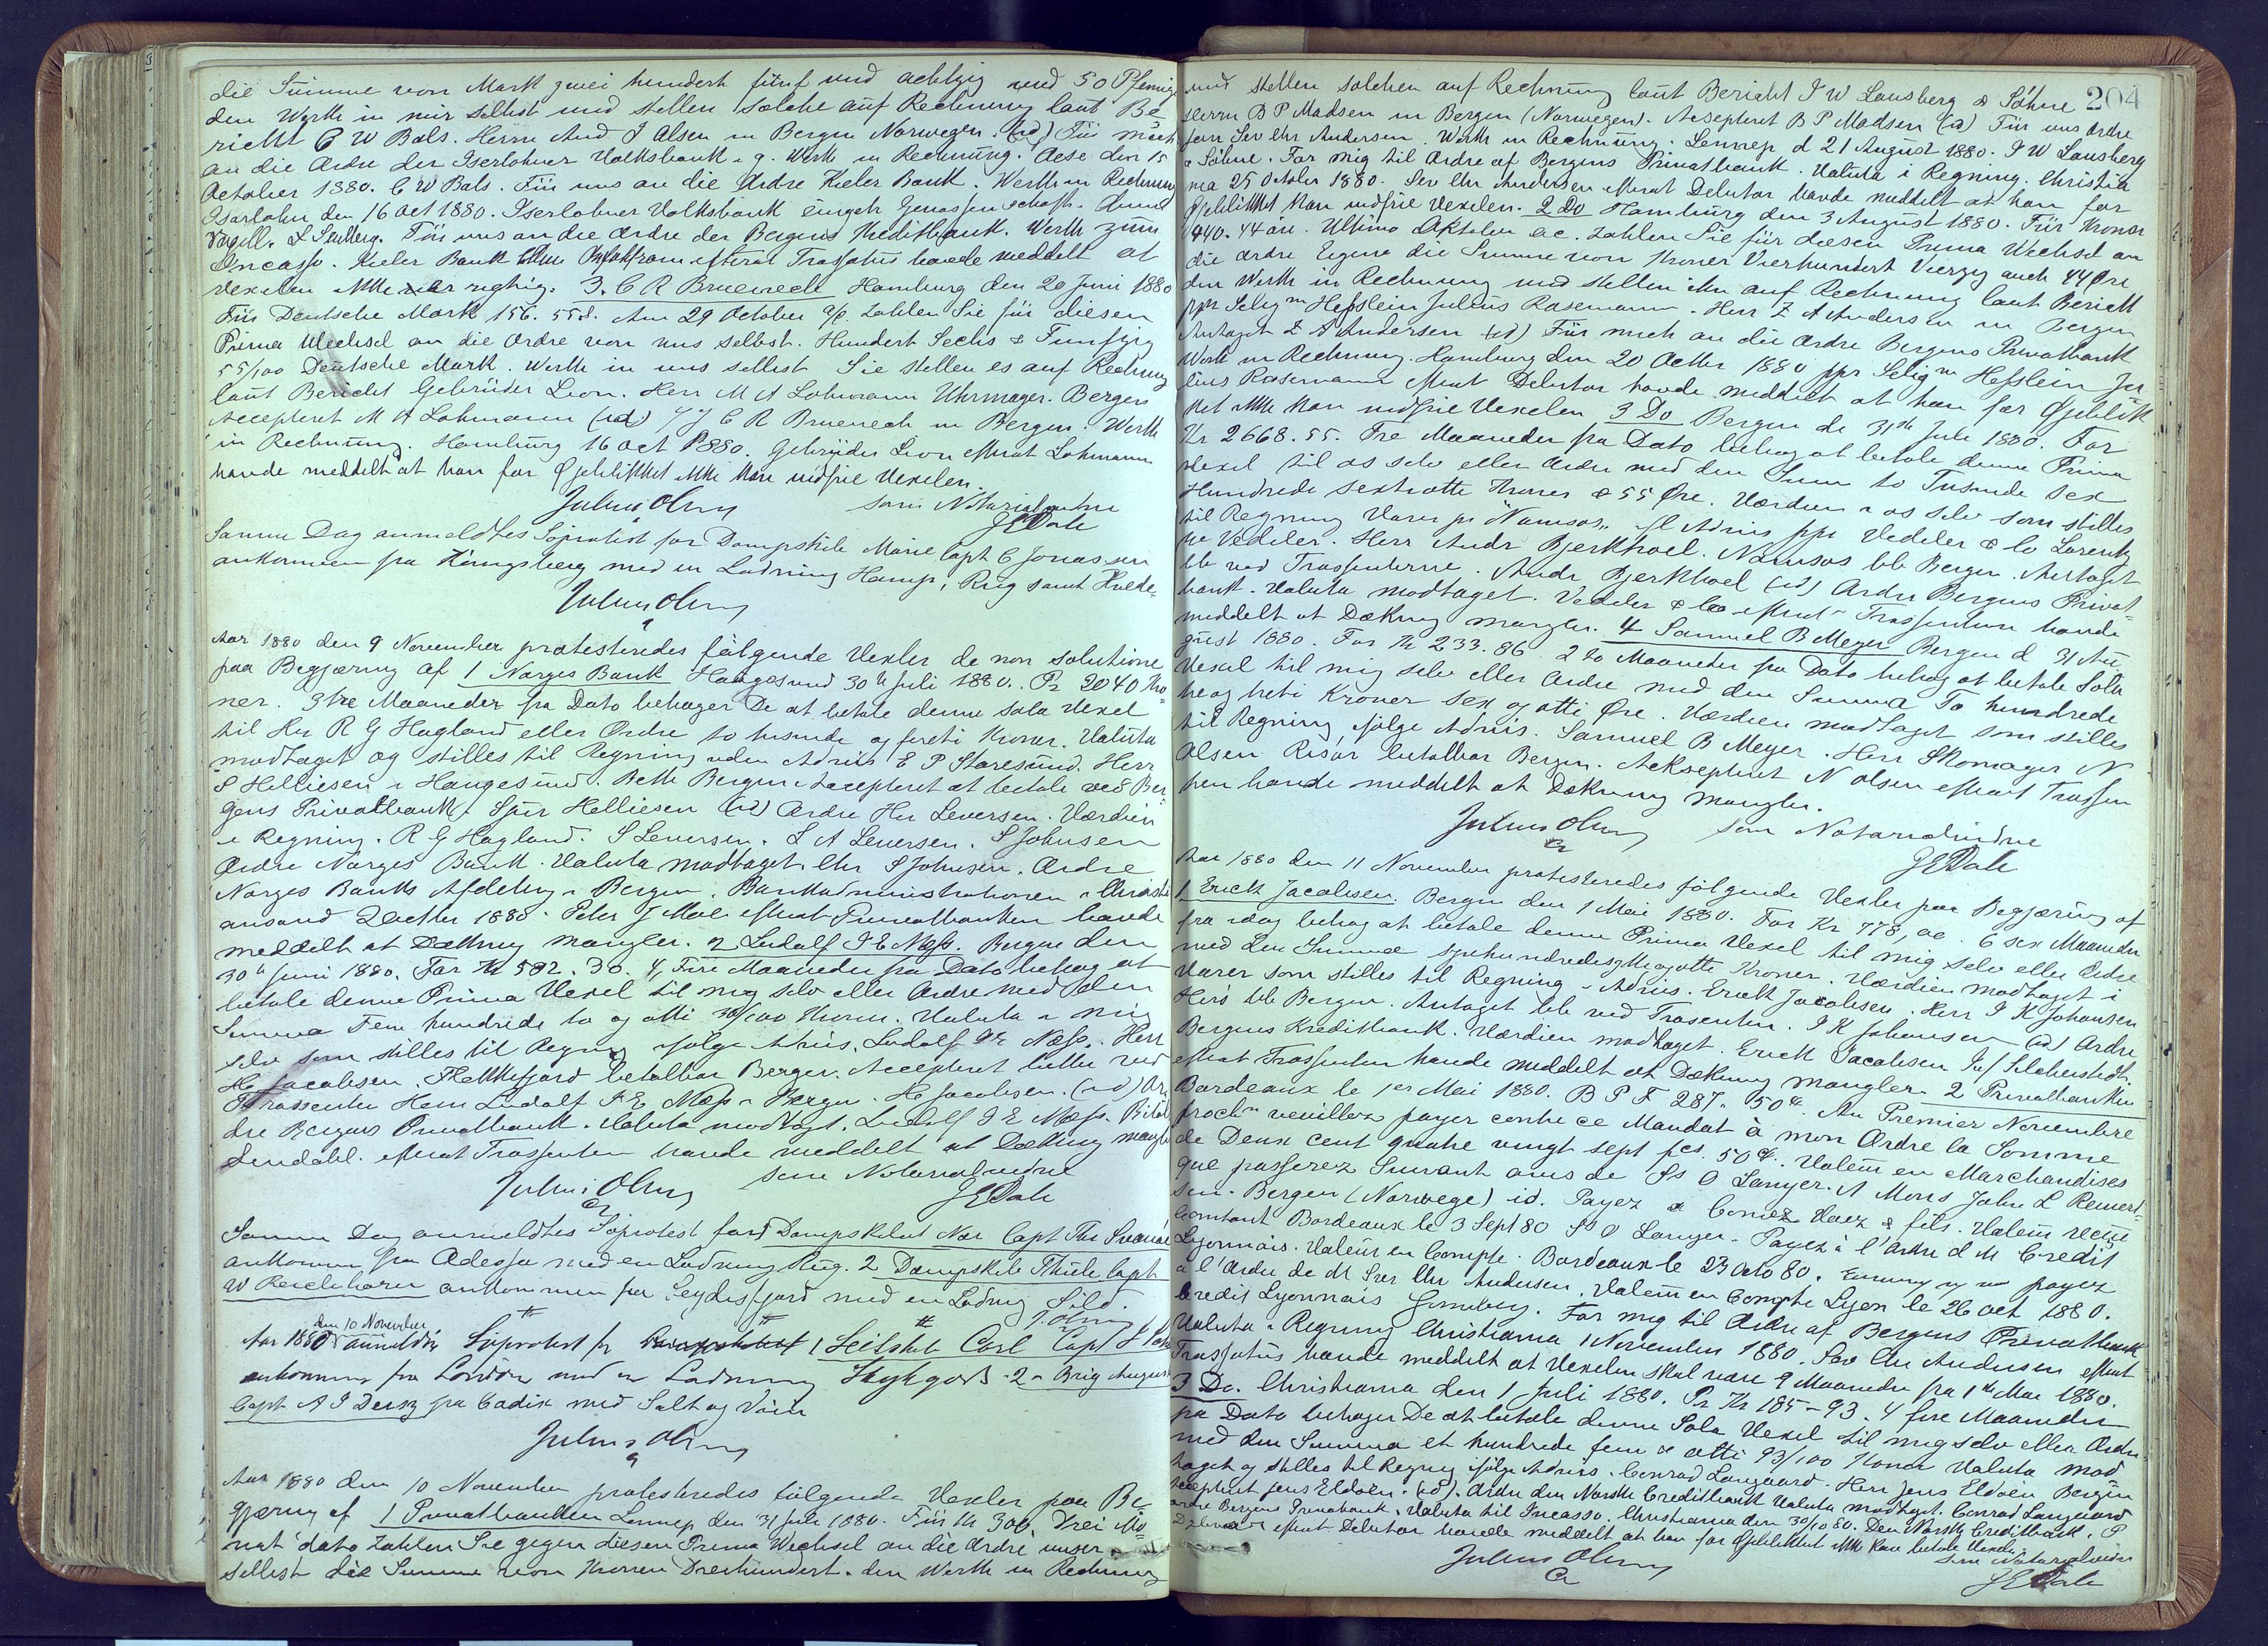 die Summe von Mark zwei hundert fünf und achtzig und 50 Pfennig
den Werth in mir selbst und stellen solche auf Rechnung laut Be
richt C W Bals. Herrn And J Olsen in Bergen Norwegen. (id) Für mich
an die Ordre der Iserlohner Volksbank e. g. Werth in Rechnung. Aese den 15
October 1880. C W Bals. Für uns an die Ordre Kieler Bank. Werth in Rechnung
Iserlohn den 16 Oct 1880. Iserlohner Volksbank eingetr Genossenschaft.
Für uns an die Ordre der Bergens Kreditbank. Werth zum
Incasso. Kieler Bank efterat Trassatus havde meddelt at
Vexelen ikke er rigtig. 3. C R Bruenech Hamburg den 20 Juni 1880
Für Deutsche Mark 156. 55 d. Am 29 October a/c Zahlen Sie für diesen
Prima Wechsel an die Ordre von uns selbst. Hundert Sechs & Funfzig
55/100 Deutsche Mark. Werth in uns selbst Sie stellen es auf Rechnung
laut Bericht Gebrüder Leon. Herr M A Lohmann Uhrmager. Bergen
Accepteret M A Lohmann (id) C R Bruenech in Bergen. Werth
in Rechnung. Hamburg 16 Oct 1880. Gebrüder Leon efterat Lohmann
havde meddelt at han for Øieblikket ikke kan indfrie Vexelen.
Julius Olsen som Notarialvidne
J E Dale
Samme Dag anmeldtes Söprotest for Dampskibe Marie Capt C Jonassen
ankommen fra Königsberg med en Ladning Hamp, Rug samt Hvede.
Julius Olsen
Aar 1880 den 9 November protesteredes følgende Vexler de non solutione
paa Begjæring af 1 Norges Bank Haugesund 30 te Juli 1880. Pr 2040 Kro
ner. 3 tre Maaneder fra Dato behager De at betale denne sola Vexel
til Her R G Hagland eller Ordre to tusinde og foreti Kroner. Valuta
modtaget og stilles til Regning uden Advis E P Storesund. Herr
S Helliesen i Haugesund. Betb Bergen Accepteret at betale ved Ber
gens Privatbank Sjur Helliesen (id) Ordre Her Leversen. Værdien
i Regning. R G Hagland. S Leversen. L A Leversen. S Johnsen
Ordre Norges Bank. Valuta modtaget. Chr S Johnsen. Ordre
Norges Banks Afdeling i Bergen. Bankadministrationen i Christi
ansand 2 Octbr 1880. Peter J Moe efterat Privatbanken havde
meddelt at Dækning mangler. 2 Ludolf I E Næss. Bergen den
30 te Juni 1880. For Kr 582. 30. 4, Fire Maaneder fra Dato behag at
betale denne Prima Vexel til mig selv eller Ordre med den
Summa Fem hundrede to og otti 30/100 Kroner. Valuta i mig
selv som stilles til Regning ifølge Advis. Ludolf I E Næss. Herr
H Jacobsen. Flekkefjord betalbar Bergen. Accepteret betbr ved
Trassenten Herr Ludolf I E Næss i Bergen. H Jacobsen. (id) Or
dre Bergens Privatbank. Valuta modtaget. Ludolf I E Næss.
Lendahl. efterat Trassenten havde meddelt at Dækning mangler
Julius Olsen som Notarialvidne
J E Dale
Samme Dag anmeldtes Söprotest for 1 Dampskibet Nor Capt Thr
ankommen fra Odessa med en Ladning Rug. 2 Dampskibe Thule Capt
W Reichborn ankommen fra Seydesfjord med en Ladning Sild.
J. Olsen
Aar 1880 den 10 November anmeldtes Söprotest for 1 Seilskib Carl Capt
ankommen fra London med en Ladning Stykgods. 2. Brig August
Capt A J fra Cadix med Salt og Viin
Julius Olsen
Aar 1880 den 10 November protesteredes følgende Vexler paa Be
gjæring af 1 Privatbanken Lennep den 31 Juli 1880. Für Kr 300. Drei Mo
nat dato Zahlen Sie gegen diesen Prima Wechsel an die Ordre unser
selbst die Summe von Kronen Dreihundert. den Werth in Rechnung
204
und stellen solchen auf Rechnung laut Bericht J W Lausberg & Söhne
Herrn B P Madsen in Bergen (Norwegen). Accepteret B P Madsen (id) Für uns Ordre
Herrn Sev Chr Andersen. Werth in Rechnung. Lennep d 21 August 1880. J W Lausberg
& Söhne. For mig til Ordre af Bergens Privatbank. Valuta i Regning. Christia
nia 25 October 1880. Sev Chr Andersen efterat Debitor havde meddelt at han for
Øieblikket kan indfrie Vexelen. 2 Do Hamburg den 3 August 1880. Für Kronor
440. 44 öre. Ultimo Oktober a.c. zahlen Sie für diesen Prima Wechsel an
die ordre Eigene die Summe von Kroner Vierhundert Vierzig auch 44 Øre
den Werth in Rechnung und stellen ihn auf Rechnung laut Bericht
ppr Selig m Hesslein Julius Rosemann. Herr Z A Andersen in Bergen
Antaget Z A Andersen (id) Für mich an die Ordre Bergens Privatbank
Werth in Rechnung. Hamburg den 20 Octbr 1880 ppr Selig m Hesslein Ju
lius Rosemann efterat Debitor havde meddelt at han for Øieblik
ket ikke kan indfrie Vexelen 3 Do Bergen de 31 te Juli 1880. For
Kr 2668. 55. Tre Maaneder fra Dato behag at betale denne Prima
Vexel til os selv eller Ordre med den Sum to Tusinde Sex
Hundrede sextiotte Kroner & 55 Øre. Værdien i os selv som stilles
til Regning Varer pr "Namsos" Advis ppr Vedeler & Co Lorentz
W Vedeler. Herr Andr Bjerkhoel. Namsos btb Bergen. Antaget
btb ved Trassenterne. Andr Bjerkhoel (id) Ordre Bergens Privat
bank. Valuta modtaget. Vedeler & Co efterat Trassenten havde
meddelt at Dækning mangler. 4 Samuel B Meyer Bergen d 31 Au
gust 1880. For Kr 233. 86. 2 to Maaneder fra Dato behag at betale Sola
Vexel til mig selv eller Ordre med den Summa To hundrede
tre og treti Kroner Sex og otti Øre. Værdien modtaget som stilles
til Regning ifølge Advis. Samuel B Meyer. Herr Skomager N
Olsen Risør betalbar Bergen. Aksepteret N Olsen efterat Trassen
ten havde meddelt at Dækning mangler.
Julius Olsen som Notarialvidne
J E Dale
Aar 1880 den 11 November protesteredes følgende Vexler paa Begjæring af
1. Erick Jacobsen. Bergen den 1 Mai 1880. For Kr 778, 00. 6 sex Maaneder
fra idag behag at betale denne Prima Vexel til mig selv eller Ordre
med den Summa syvhundredesyttiogotte Kroner. Værdien modtaget i
Varer som stilles til Regning i Advis. Erick Jacobsen. Herr I K Johansen
Herö btb Bergen. Antaget btb ved Trasenten. I K Johansen (id) Ordre
Bergens Kreditbank. Værdien modtaget. Erick Jacobsen
efterat Trassenten havde meddelt at Dækning mangler. 2 Privatbanken
Bordeaux le 1er Mai 1880. B P F 287. 50 c. Au Premier Novembre
proch n veuillez payer contre ce Mandat à mon Ordre la Somme
de Deux cent quatre vingt sept fcs. 50 c. Valeur en Marchandises
que passerez Suivant avis de Fs O Lanyer. A Mons John L Reinert
sen. Bergen (Norwege) id. Payez a & fils. Valeur reçue
Comtant Bordeaux le 3 Sept 80 Fs O Lanyer. Payez à l'Ordre d M Credit
Lyonnais. Valeur en Compte. Bordeaux le 23 Octo 80. payez
a l'Ordre de M Sver Chr Andersen. Valeur en Compte Lyon le 26 Oct 1880.
Credit Lyonnais. For mig til Ordre af Bergens Privatbank
Valuta i Regning Christiania 1 November 1880. Sev Chr Andersen efterat
Trassatus havde meddelt at Vexelen skal være 9 Maaneder fra 1 te Mai 1880.
3 Do. Christiania den 1 Juli 1880. Pr Kr 185-93. 4 fire Maaneder
fra Dato behager De at betale denne Sola Vexel til mig selv eller Ordre
med den Summa et hundrede fem & otti 93/100 Kroner Valuta mod
taget og stilles til Regning ifølge Advis. Conrad Langaard. Herr Jens Eldøen Bergen
Accepteret Jens Eldøen. (id). Ordre den Norske Creditbank Valuta modtaget. Conrad Langaard
ordre Bergens Privatbank. Valuta til Incasso. Christiania den 30/10 80. Den Norske Creditbank.
efterat Debitor havde meddelt at han for Øieblikket ikke kan betale Vexelen.
Julius Olsen som Notarialvidne
J E Dale